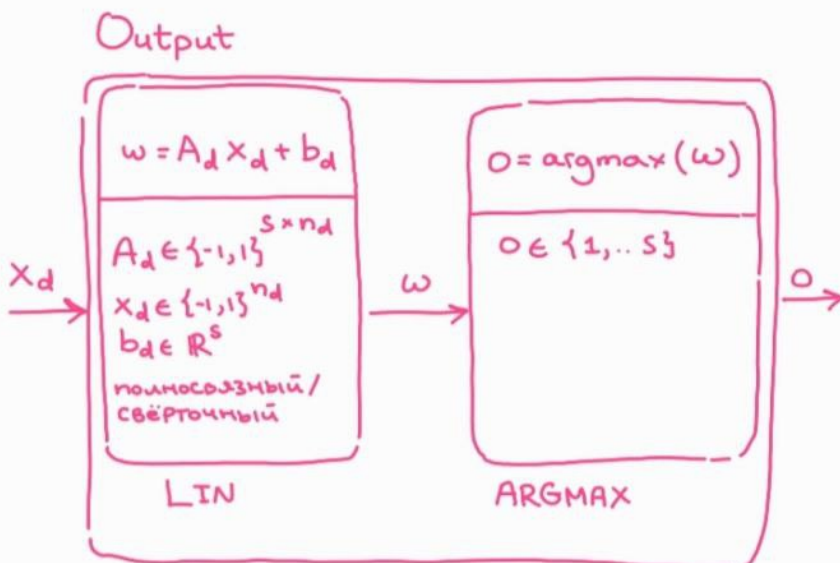 Output
w = A_d x_d + b_d
A_d ∈ {-1,1}^{s×n_d}
x_d ∈ {-1,1}^{n_d}
b_d ∈ ℝ^s
полносвязный/
свёрточный
LIN
o = argmax(w)
o ∈ {1,..s}
ARGMAX
x_d
w
o